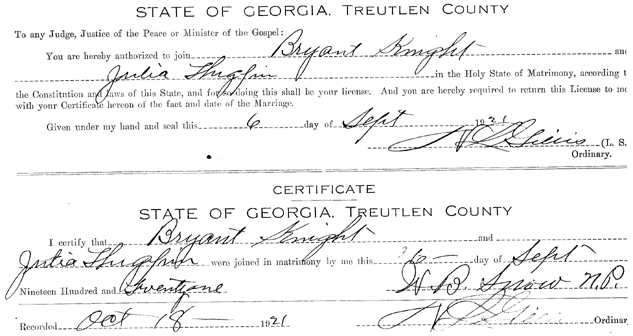 STATE OF GEORGIA, TREUTLEN COUNTY
To any Judge, Justice of the Peace or Minister of the Gospel:
You are hereby authorized to join Bryant Knight and
Julia in the Holy State of Matrimony, according t
the Constitution and laws of this State, and for so doing this shall be your license. And you are hereby required to return this License to me
with your Certificate hereon of the fact and date of the Marriage.
Given under my hand and seal this 6 day of Sept 1921
(L. S.
Ordinary.
CERTIFICATE
STATE OF GEORGIA, TREUTLEN COUNTY
I certify that Bryant Knight and
Julia were joined in matrimony by me this day of Sept
Nineteen Hundred and Twentyone W. B. Snow N.P.
Recorded Oct 18 1921 Ordinar